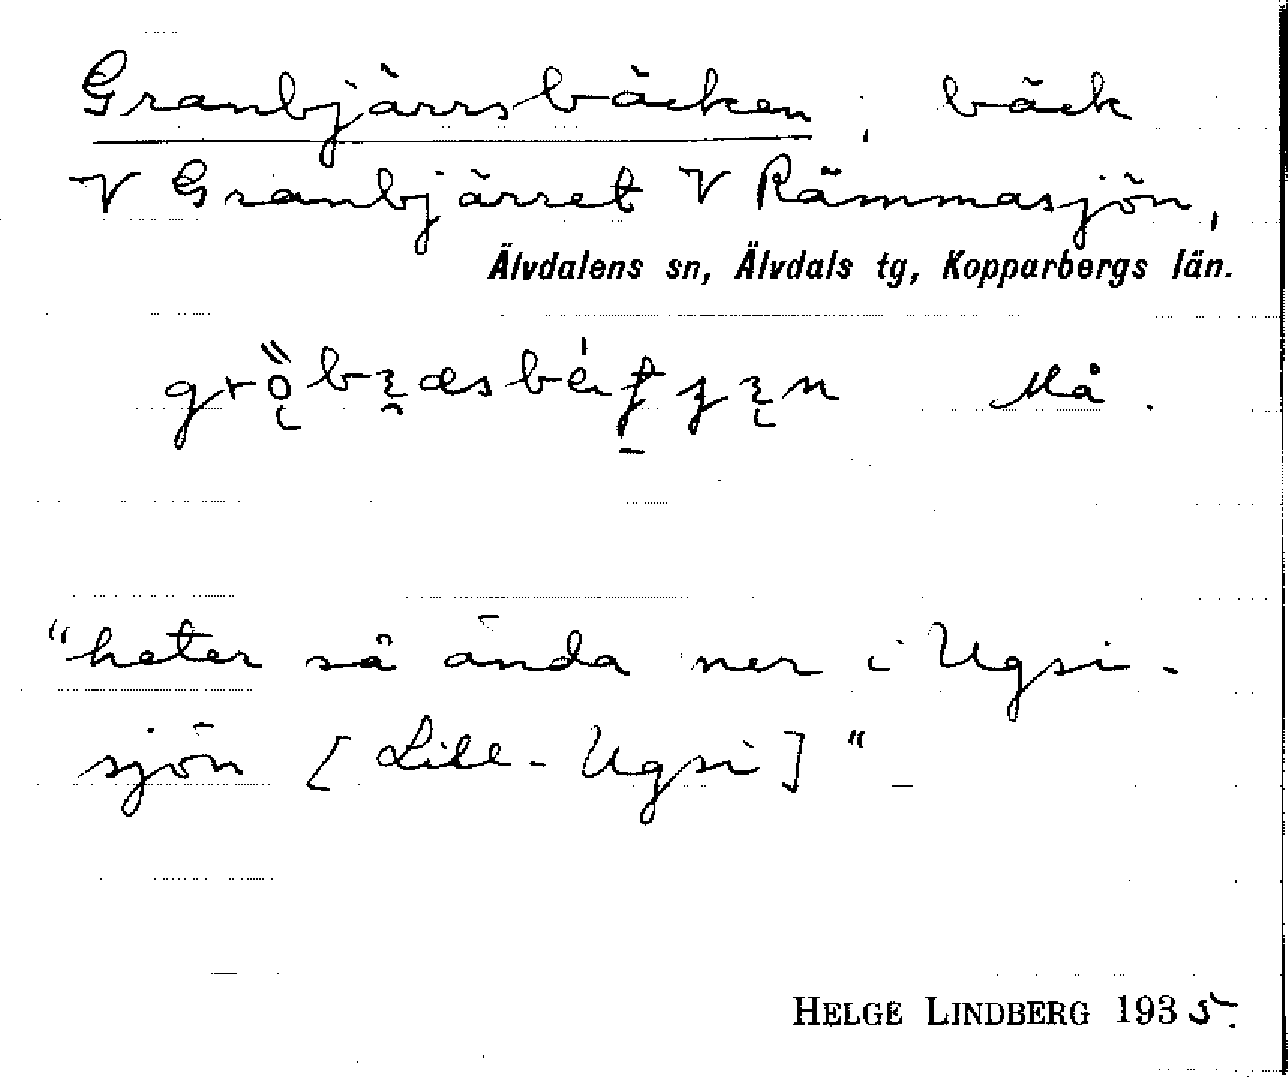 Granbjärrsbäcken, bäck
V Granbjärret V Rämmasjön,
Älvdalens sn, Älvdals tg, Kopparbergs län.
Må.
"heter så ända ner i Ugsi-
sjön [Lill-Ugsi]"
HELGE LINDBERG 1935.